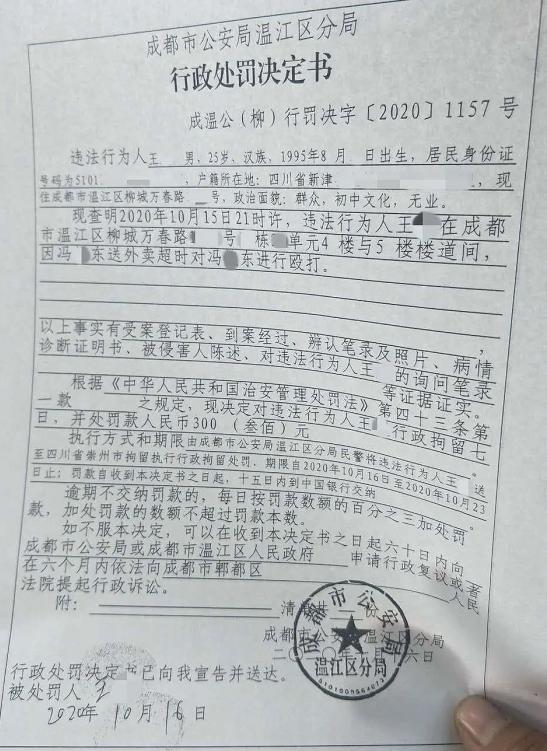 成都市公安局温江区分局
行政处罚决定书
成温公（柳）行罚决字〔2020〕1157 号
违法行为人王 男，25岁，汉族，1995年8月 日出生，居民身份证
号码为5101 ，户籍所在地：四川省新津 ，现
住成都市温江区柳城万春路 号，政治面貌：群众，初中文化，无业。
现查明2020年10月15日21时许，违法行为人王 在成都
市温江区柳城万春路 号 栋 单元4 楼与5 楼楼道间，
因冯 东送外卖超时对冯 东进行殴打。
以上事实有受案登记表、到案经过、辨认笔录及照片、病情
诊断证明书、被侵害人陈述、对违法行为人王 的询问笔录
等证据证实。
根据《中华人民共和国治安管理处罚法》第四十三条第
一款 之规定，现决定对违法行为人王 行政拘留七
日，并处罚款人民币300（叁佰）元
执行方式和期限由成都市公安局温江区分局民警将违法行为人王 送
至四川省崇州市拘留执行行政拘留处罚，期限自2020年10月16日至2020年10月23
日止；罚款自收到本决定书之日起，十五日内到中国银行交纳
逾期不交纳罚款的，每日按罚款数额的百分之三加处罚
款，加处罚款的数额不超过罚款本数。
如不服本决定，可以在收到本决定书之日起六十日内向
成都市公安局或成都市温江区人民政府 申请行政复议或者
在六个月内依法向成都市郫都区 人民
法院提起行政诉讼。
附： 清单共 份
成都市公安局温江区分局
二〇二〇年十月十六日
成都市公安局
温江区分局
行政处罚决定书已向我宣告并送达。
被处罚人 王
2020年 10 月 16 日